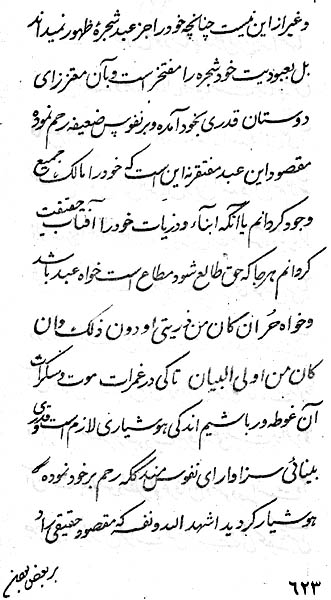 و غیر از این نیست چنانچه خود را جز عبد شجرهٔ ظهور نمیداند
بل بعبودیت خود شجره را مفتخر است و بآن معتزز ای
دوستان قدری بخود آمده و بر نفوس ضعیفه رحم نموده
مقصود این عبد مفتقر نه این است که خود را مالک جمیع
وجود گردانم یا آنکه ابناء و ذریات خود را آفتاب حقیقت
گردانم هر جا که حق طالع شود مطاع است خواه عبد باشد
و خواه حر ان کان من ذریتی او دون ذلک و ان
کان من اولی البیان تا کی در غمرات موت و سکرات
آن غوطه‌ور باشیم اندکی هوشیاری لازم است و قدری
بینائی سزاوار ای نفوس منهمکه رحم بر خود نموده
هوشیار گردید اشهد الله و نفسه که مقصود حقیقی
بر بعض یقین
٦٢٣